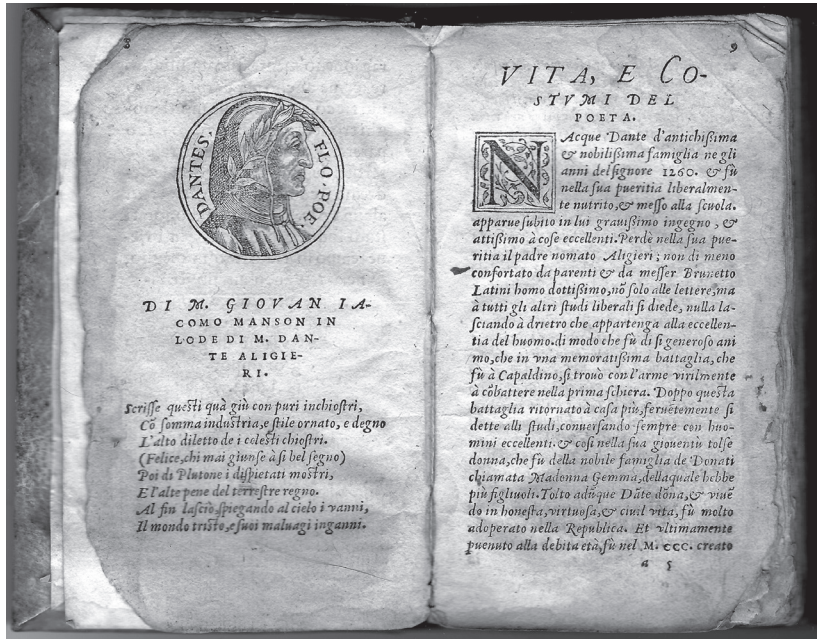 88
DANTES. FLO. POE.
DI M. GIOVAN IA-
COMO MANSON IN
LODE DI M. DAN-
TE ALIGIE-
RI.
Scriſſe queſti quà giù con puri inchioſtri,
Cō ſomma induſtria, e ſtile ornato, e degno
L'alto diletto de i celeſti chioſtri.
(Felice, chi mai giunſe à ſi bel ſegno)
Poi di Plutone i diſpietati moſtri,
E l'alte pene del terreſtre regno.
Al fin laſciò, ſpiegando al cielo i vanni,
Il mondo triſto, e ſuoi maluagi inganni.
9
VITA, E CO-
STVMI DEL
POETA.
NAcque Dante d'antichiſsima
& nobiliſsima famiglia ne gli
anni del ſignore 1260. & fù
nella ſua pueritia liberalmen-
te nutrito, & meſſo alla ſcuola.
apparue ſubito in lui grauiſsimo ingegno, &
attiſsimo à coſe eccellenti. Perdè nella ſua pue-
ritia il padre nomato Aligieri; non di meno
confortato da parenti & da meſſer Brunetto
Latini homo dottiſsimo, nō ſolo alle lettere, ma
à tutti gli altri ſtudi liberali ſi diede, nulla la-
ſciando à drietro che appartenga alla eccellen-
tia del huomo. di modo che fù di ſi generoſo ani
mo, che in vna memoratiſsima battaglia, che
fù à Capaldino, ſi trouò con l'arme virilmente
à cōbattere nella prima ſchiera. Doppo queſta
battaglia ritornato à caſa più, feruētemente ſi
dette alli ſtudi, conuerſando ſempre con huo-
mini eccellenti. & coſi nella ſua giouentù tolſe
donna, che fù della nobile famiglia de Donati
chiamata Madonna Gemma, della quale hebbe
più figliuoli. Tolto adūque Dāte dōna, & viuē
do in honeſta, virtuoſa, & ciuil vita, fù molto
adoperato nella Republica. Et vltimamente
puenuto alla debita età, fù nel M. CCC. creato
a 5